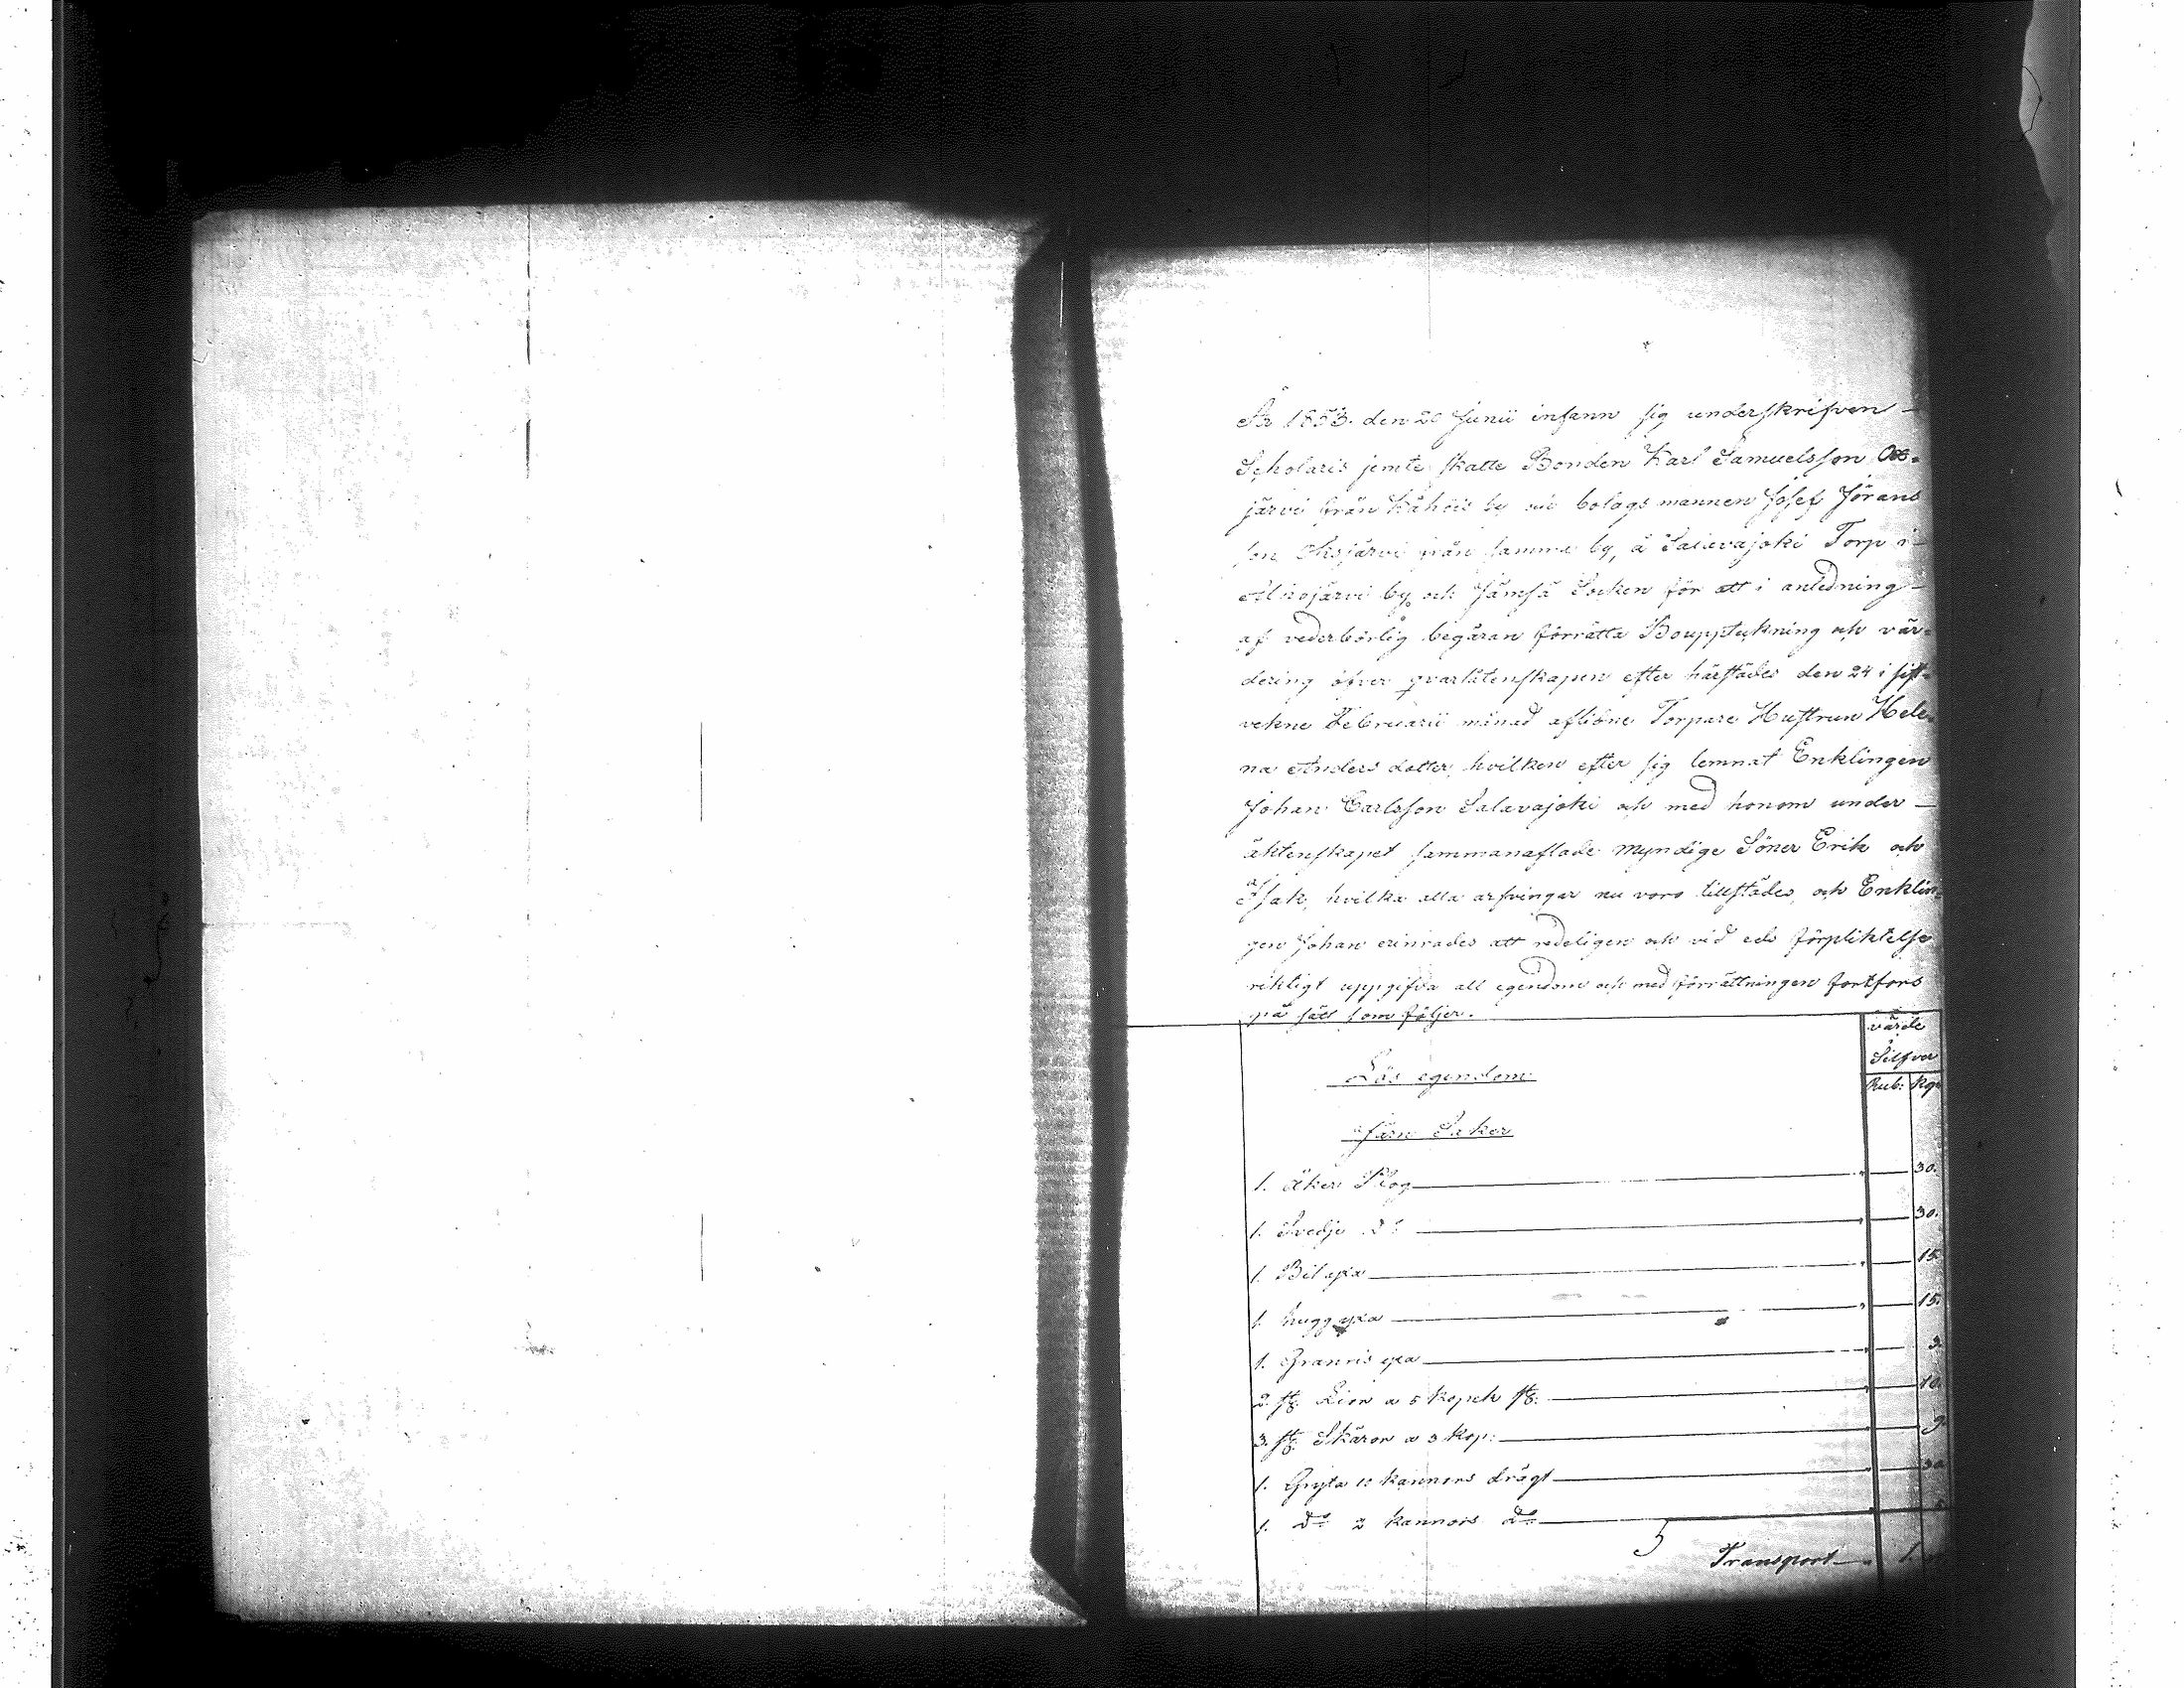 År 1853. den 20 Junii infann sig underskrifven
Scholaris jemte skatte Bonden Karl Samuelsson
järvi från by och bolagsmannen Josef Jörans
son från samma by, å Salavajoki Torp i
by och Jämsä Socken för att i anledning
af vederbörlig begäran förrätta Boupptekning och vär-
dering öfver qvarlåtenskapen efter härstädes den 24 i sist-
vekne Februarii månad aflidne Torpare Hustrun Hele-
na Anders dotter, hvilken efter sig lemnat Enklingen
Johan Carlsson Salavajoki och med honom under
äktenskapet sammanaflade myndige Söner Erik och
Isak, hvilka alla arfvingar nu voro tillstädes, och Enklin-
gen Johan erinrades att redeligen och vid eds förpliktelse
riktigt uppgifva all egendom och med förrättningen fortfors
på sätt som följer.
värde
Silfver
Rub: Kop
Lös egendom
Järn Saker
1. åker Plog 30.
1. Svedje d:o 30.
1. Bil yxa 15.
1. hugg yxa 15.
1. Granris yxa 3.
2. st: Lior a 5 kopek st: 10.
3. st: Skäror a 3 kop: 9
1. Gryta 10 kannors drägt 30
1. d:o 2 kannors d:o
Transport 1.